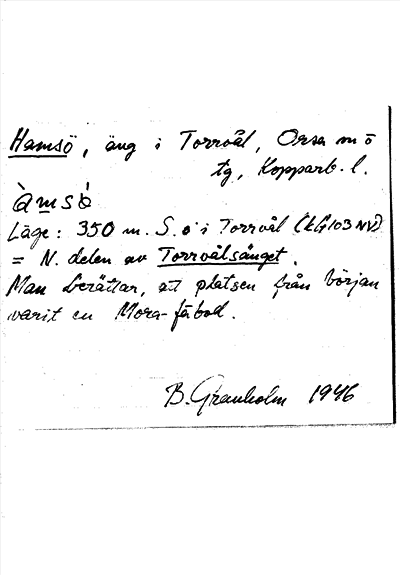 Hamsö, äng i Torrvål, Orsa m ö
tg, Kopparb. l.
àmsö̀
Läge: 350 m. S. ö i Torrvål (kG103NV)
= N. delen av Torrvålsänget.
Man berättar, att platsen från början
varit en Mora-fäbod.
B. Granholm 1946